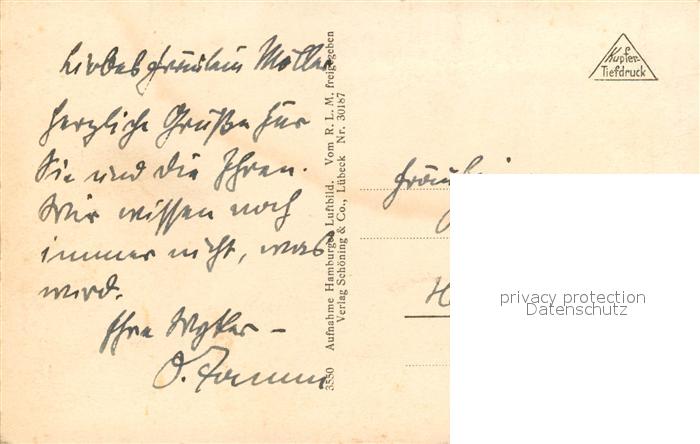 Liebes Fräulein Möller
Herzliche Grüße für
Sie und die Ihren.
Wir wissen noch
immer nicht, was
wird.
Ihre
O.
3550 Aufnahme Hamburger Luftbild. Vom R. L. M. freigegeben
Verlag Schöning & Co., Lübeck Nr. 30187
Kupfer-
Tiefdruck
privacy protection
Datenschutz